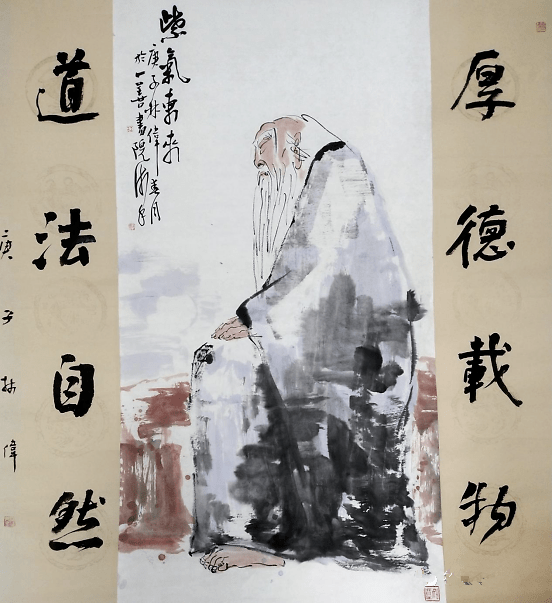 厚德載物
紫氣東來
庚子林偉
於一善書院
道法自然
庚子林偉